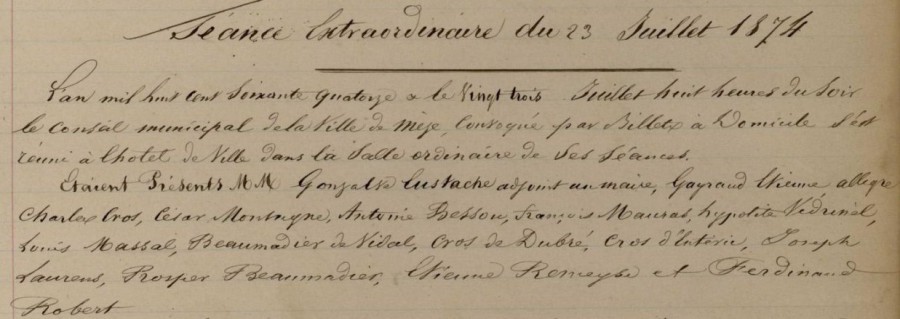 Séance Extraordinaire du 23 Juillet 1874
L'an mil huit cent Soixante quatorze & le Vingt trois Juillet huit heures du Soir
le Conseil municipal de la Ville de Mèze, Convoqué par Billets à Domicile s'est
réuni à l'hotel de Ville dans la Salle ordinaire de Ses Séances.
Etaient Présents MM Gonzalve Eustache adjoint au maire, Gayraud Etienne, allegre
Charles Cros, César Montagne, Antoine Bessou, françois Mauras, hypolite Védrinel,
Louis Massal, Beaumadier de Vidal, Cros de Dubré, Cros d'Intérie, Joseph
Laurens, Prosper Beaumadier, Etienne et Ferdinand
Robert